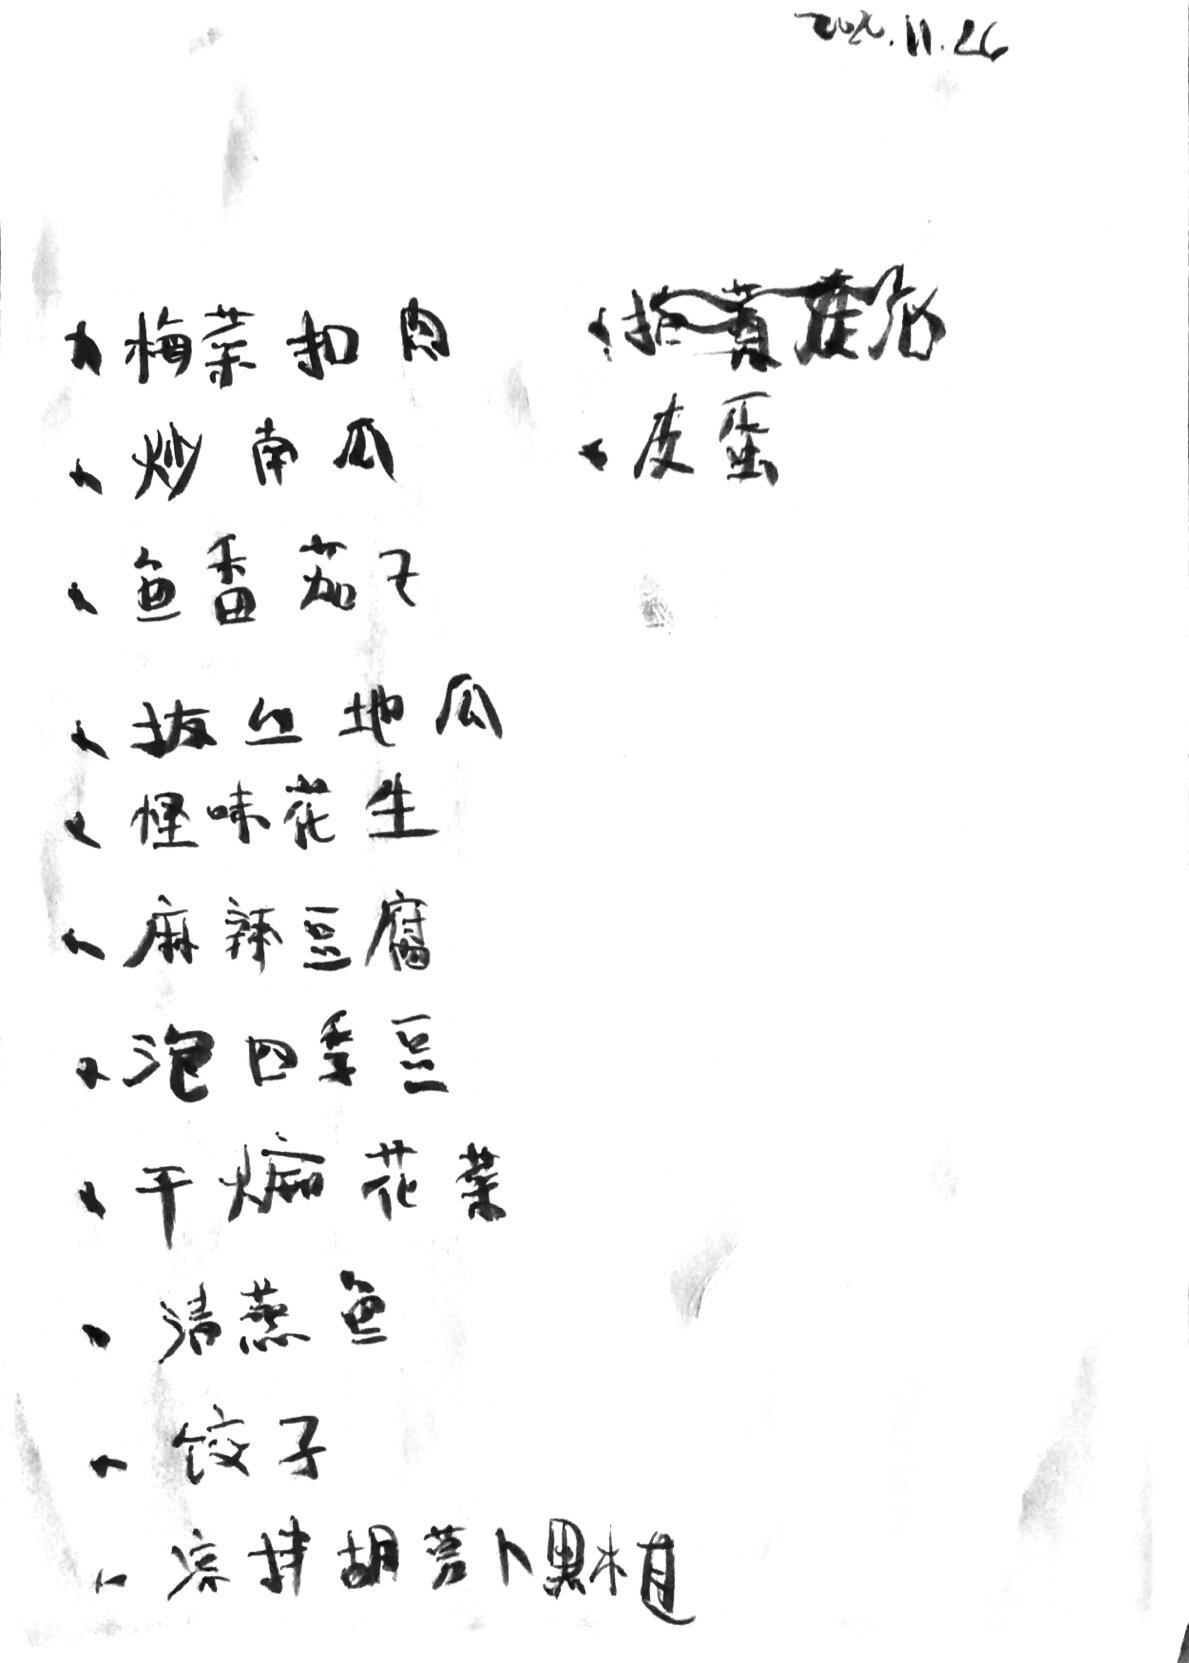 2020.11.26
梅菜扣肉
炒南瓜
鱼香茄子
拔丝地瓜
怪味花生
麻辣豆腐
泡四季豆
干煸花菜
清蒸鱼
饺子
凉拌胡萝卜黑木
皮蛋